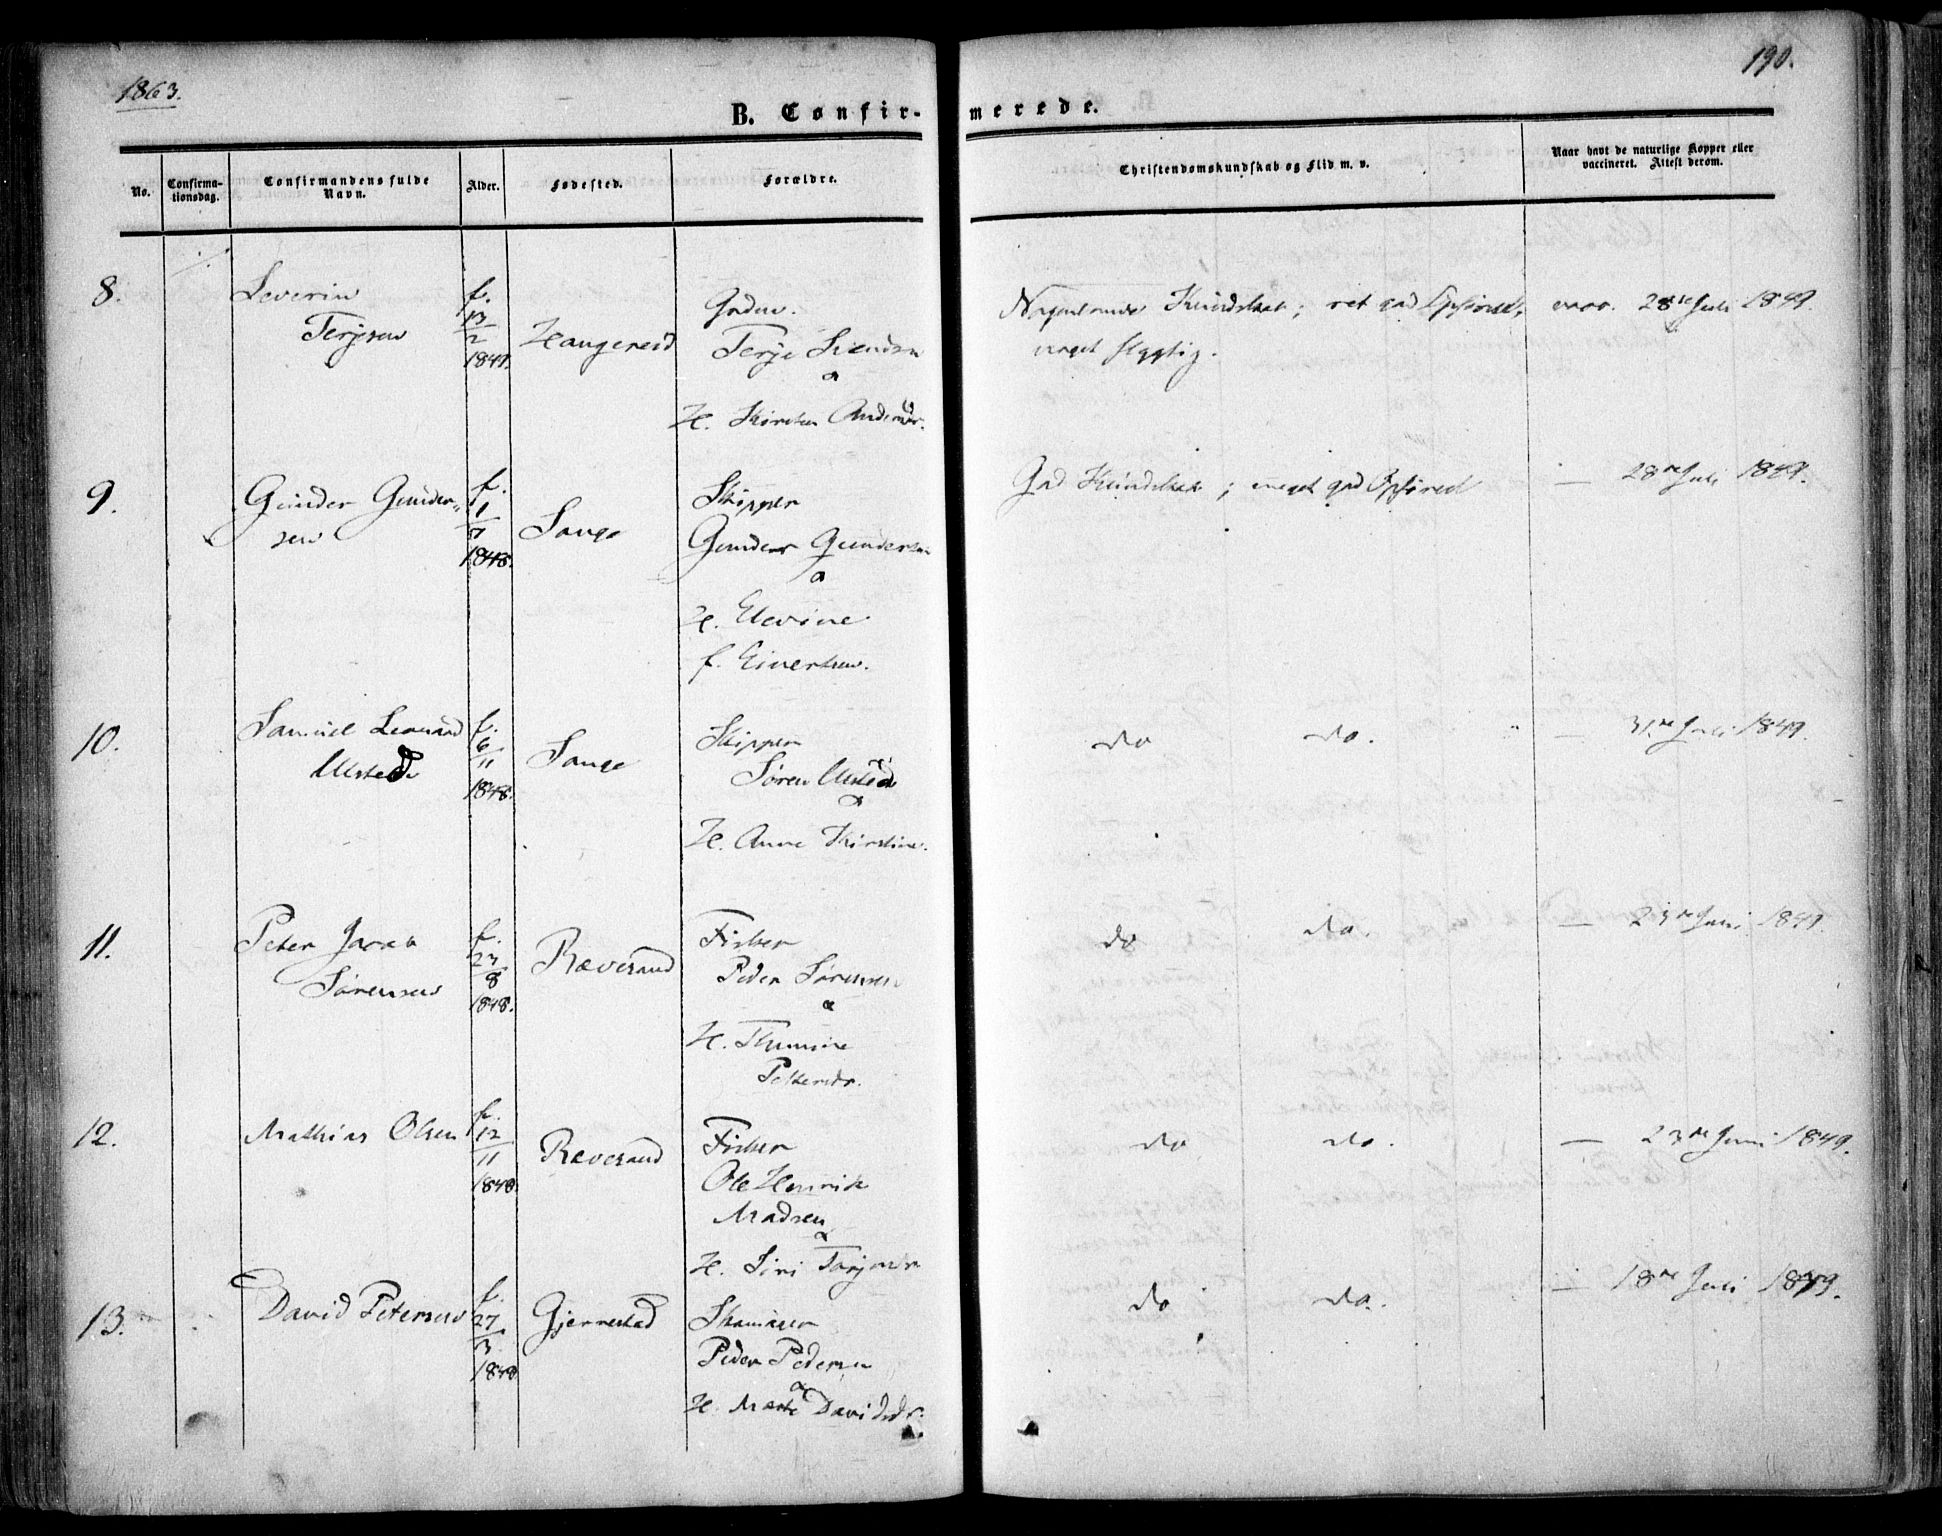 1863.
190.
B. Confirmerede.
No.
Confirma-
tionsdag.
Confirmandens fulde
Navn.
Alder.
Fødested.
Forældre.
Christendomskundskab og Flid m. v.
Naar havt de naturlige Kopper eller
vaccineret. Attest derom.
8.
Severin
Terjesen
f.
13
2
1849.
Gdm.
Terje
&
H. Kirsten
Kundskab; ret god Opførsel,
meget flygtig.
vacc. 28de Juli 1849.
9.
Gunder Gunder-
sen
f.
1
7
1848.
Songe
Skipper
Gunder Gundersen
&
H. Elevine
f. Eivertsen.
God Kundskab; meget god Opførsel
— 28de Juli 1849.
10.
Samuel Leonard
Ulsted
f.
6
11
1848.
Songe
Skipper
Søren Ulsted
&
H. Anne Kirstine.
do do.
" 31te Juli 1849.
11.
Peter
Sørensen
f.
27
8
1848.
Ræversand
Fisker
Peder Sørensen
&
H.
Pettersdr.
do do.
— 23de Juni 1849.
12.
Mathias Olsen
f.
12
11
1848
Ræversand
Fisker
Ole Henrik
Madsen
&
H. Siri Torjesdr
do do.
— 23de Juni 1849.
13.
David Petersen
f.
27
3.
1848
Gjernestad
Skomager
Peder Pedersen
&
H. Marte Davidsdr.
do do.
— 18de Juli 1849.